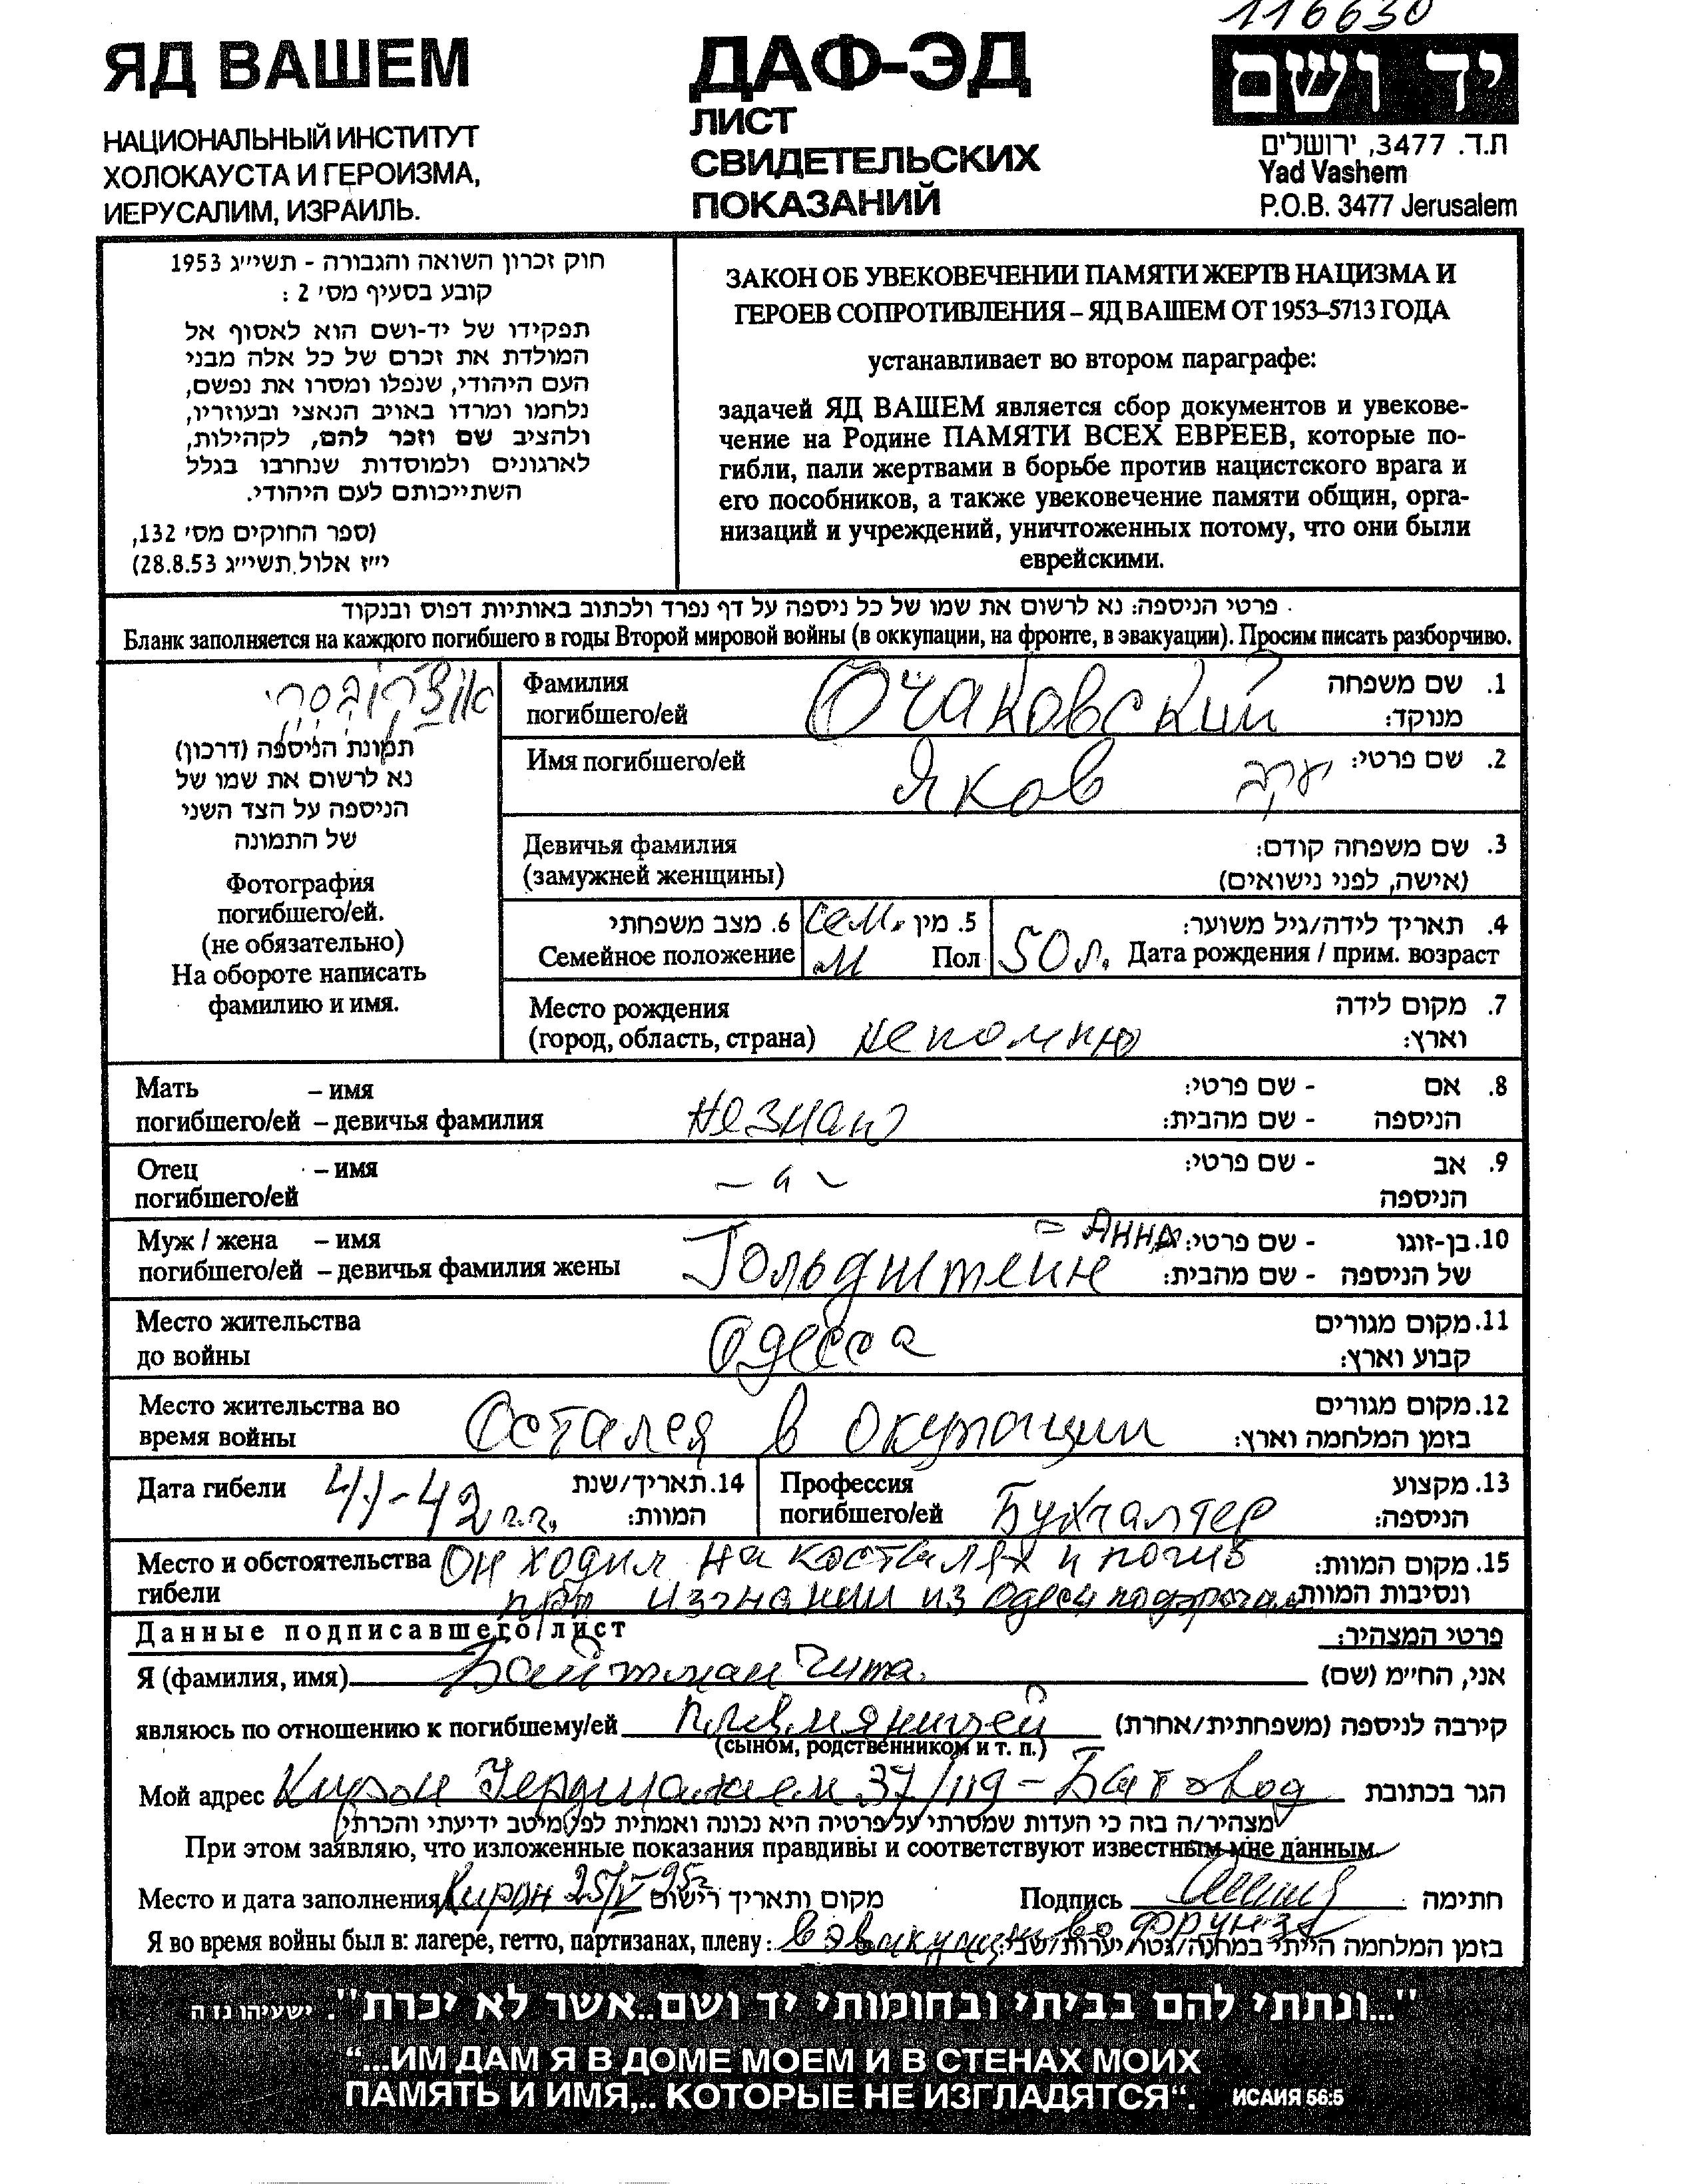 116630
ЯД ВАШЕМ
НАЦИОНАЛЬНЫЙ ИНСТИТУТ
ХОЛОКАУСТА И ГЕРОИЗМА,
ИЕРУСАЛИМ, ИЗРАИЛЬ.
ДАФ-ЭД
ЛИСТ
СВИДЕТЕЛЬСКИХ
ПОКАЗАНИЙ
יד ושם
ת.ד. 3477, ירושלים
Yad Vashem
P.O.B. 3477 Jerusalem
חוק זכרון השואה והגבורה - תשי״ג 1953
קובע בסעיף מס׳ 2 :
תפקידו של יד-ושם הוא לאסוף אל
המולדת את זכרם של כל אלה מבני
העם היהודי, שנפלו ומסרו את נפשם,
נלחמו ומרדו באויב הנאצי ובעוזריו,
ולהציב שם וזכר להם, לקהילות,
לארגונים ולמוסדות שנחרבו בגלל
השתייכותם לעם היהודי.
(ספר החוקים מס׳ 132,
י״ז אלול תשי״ג 28.8.53)
ЗАКОН ОБ УВЕКОВЕЧЕНИИ ПАМЯТИ ЖЕРТВ НАЦИЗМА И
ГЕРОЕВ СОПРОТИВЛЕНИЯ – ЯД ВАШЕМ ОТ 1953–5713 ГОДА
устанавливает во втором параграфе:
задачей ЯД ВАШЕМ является сбор документов и увекове-
чение на Родине ПАМЯТИ ВСЕХ ЕВРЕЕВ, которые по-
гибли, пали жертвами в борьбе против нацистского врага и
его пособников, а также увековечение памяти общин, орга-
низаций и учреждений, уничтоженных потому, что они были
еврейскими.
פרטי הניספה: נא לרשום את שמו של כל ניספה על דף נפרד ולכתוב באותיות דפוס ובנקוד
Бланк заполняется на каждого погибшего в годы Второй мировой войны (в оккупации, на фронте, в эвакуации). Просим писать разборчиво.
אוצ'קובסקי
תמונת הניספה (דרכון)
נא לרשום את שמו של
הניספה על הצד השני
של התמונה
Фотография
погибшего/ей.
(не обязательно)
На обороте написать
фамилию и имя.
Фамилия Очаковский 1. שם משפחה
погибшего/ей מנוקד:
Имя погибшего/ей Яков יעקב 2. שם פרטי:
Девичья фамилия 3. שם משפחה קודם:
(замужней женщины) (אישה, לפני נישואים)
6. מצב משפחתי сем. 5. מין 4. תאריך לידה/גיל משוער:
Семейное положение м Пол 50 л. Дата рождения / прим. возраст
Место рождения 7. מקום לידה
(город, область, страна) не помню וארץ:
Мать – имя 8. אם - שם פרטי:
погибшего/ей – девичья фамилия незнаю הניספה - שם מהבית:
Отец – имя 9. אב - שם פרטי:
погибшего/ей – " – הניספה
Муж / жена – имя = Анна 10. בן-זוגו - שם פרטי:
погибшего/ей – девичья фамилия жены Гольдштейн של הניספה - שם מהבית:
Место жительства 11. מקום מגורים
до войны Одесса קבוע וארץ:
Место жительства во 12. מקום מגורים
время войны Остался в окупации בזמן המלחמה וארץ:
Дата гибели 41-42 г.г. 14. תאריך/שנת המוות:
Профессия 13. מקצוע
погибшего/ей Бухгалтер הניספה:
Место и обстоятельства Он ходил на костылях и погиб 15. מקום המוות:
гибели при изгнании из Одессы под ונסיבות המוות:
Данные подписавшего лист פרטי המצהיר:
Я (фамилия, имя) Байтман Чита אני, הח״מ (שם)
являюсь по отношению к погибшему/ей племяницей קירבה לניספה (משפחתית/אחרת)
(сыном, родственником и т. п.)
Мой адрес Кирон 37/119 - הגר בכתובת
מצהיר/ה בזה כי העדות שמסרתי על פרטיה היא נכונה ואמתית לפי מיטב ידיעתי והכרתי
При этом заявляю, что изложенные показания правдивы и соответствуют известным мне данным.
Место и дата заполнения Кирон 25/V-95г מקום ותאריך רישום Подпись חתימה
Я во время войны был в: лагере, гетто, партизанах, плену: в эвакуации во Фрунзе בזמן המלחמה הייתי במחנה/גטו/יערות/שבי:
"...ונתתי להם בביתי ובחומותי יד ושם...אשר לא יכרת". ישעיהו נז ה
“...ИМ ДАМ Я В ДОМЕ МОЕМ И В СТЕНАХ МОИХ
ПАМЯТЬ И ИМЯ,.. КОТОРЫЕ НЕ ИЗГЛАДЯТСЯ“. ИСАИЯ 56:5